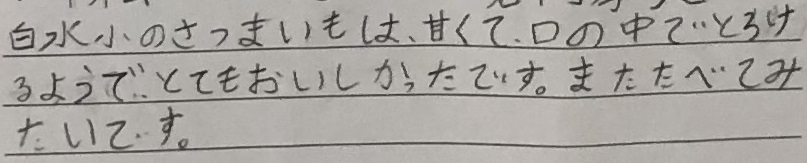 白水小のさつまいもは、甘くて、口の中でとろけ
るようで、とてもおいしかったです。またたべてみ
たいです。